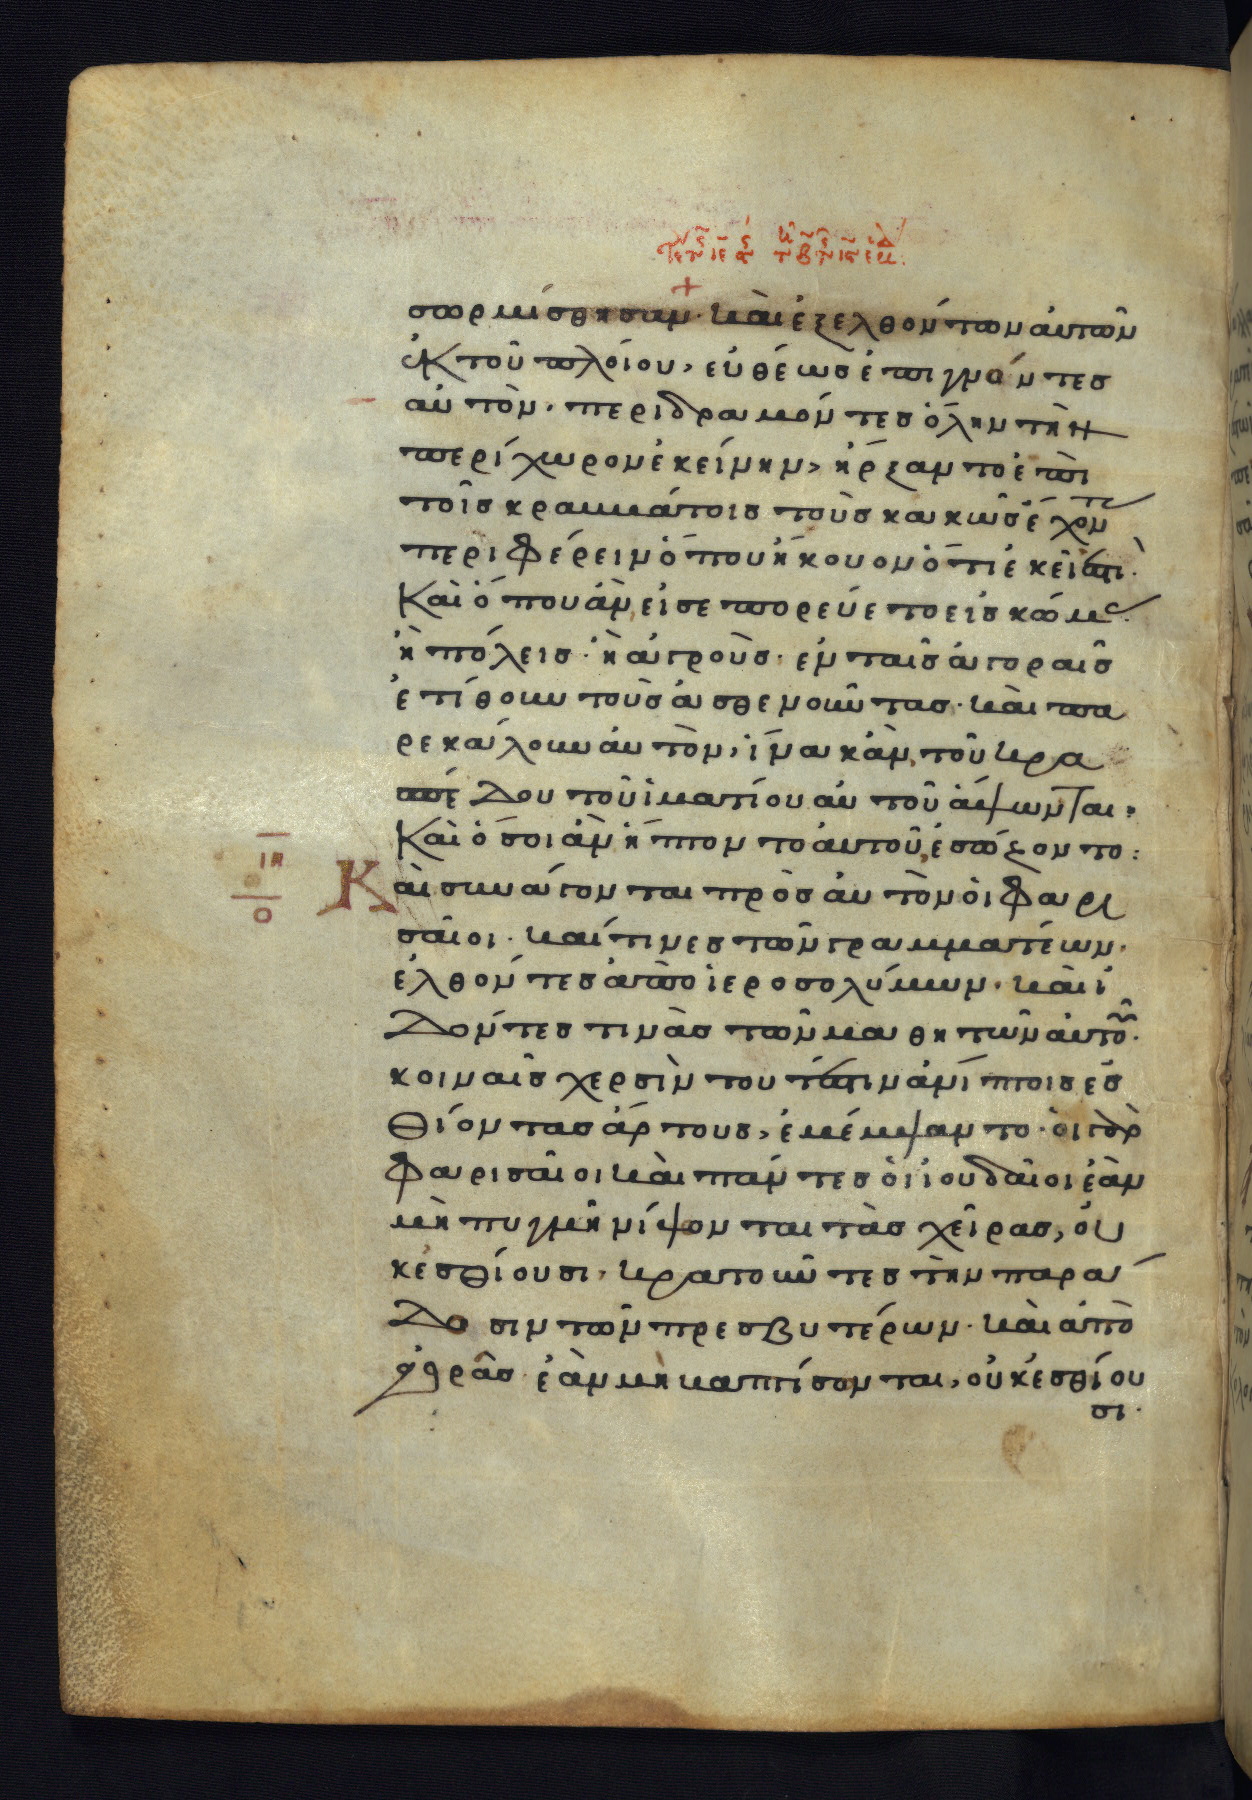 σωρμίσθησαν· καὶ ἐξελθόντων αὐτῶν
ἐκ τοῦ πλοίου, εὐθέως ἐπιγνόντες
αὐτὸν· περιδραμόντες ὅλην τὴν
περίχωρον ἐκείνην, ἤρξαντο ἐπὶ
τοῖς κραμμάτοις τοὺς κακῶς ἔχον
περιφέρειν ὅπου ἤκουον ὅτι ἐκεῖ ἐστι·
Καὶ ὅπου ἂν εἰσεπορεύετο εἰς κώμ
ἢ πόλεις· ἢ ἀγροὺς· ἐν ταῖς ἀγοραῖς
ἐτίθουν τοὺς ἀσθενοῦντας· καὶ πα
ρεκάλουν αὐτὸν, ἵνα κἂν τοῦ κρα
σπέδου τοῦ ἱματίου αὐτοῦ ἅψωνται·
Καὶ ὅσοι ἂν ἥπτοντο αὐτοῦ, ἐσώζοντο:
ιη
ο
Καὶ συνάγονται πρὸς αὐτὸν οἱ φαρι
σαῖοι· καί τινες τῶν γραμματέων·
ἐλθόντες ἀπὸ ἱεροσολύμων· καὶ ἰ
δόντες τινὰς τῶν μαθητῶν αὐτοῦ·
κοιναῖς χερσὶν τουτέστιν ἀνίπτοις ἐσ
θίοντας ἄρτους, ἐμέμψαντο· οἱ γὰρ
φαρισαῖοι καὶ πάντες οἱ ἰουδαῖοι ἐὰν
μὴ πυγμῇ νίψονται τὰς χεῖρας, οὐ
κ ἐσθίουσι· κρατοῦντες τὴν παρά
δοσιν τῶν πρεσβυτέρων· καὶ ἀπὸ
ἀγορᾶς ἐὰν μὴ βαπτίσονται, οὐκ ἐσθίου
σι·